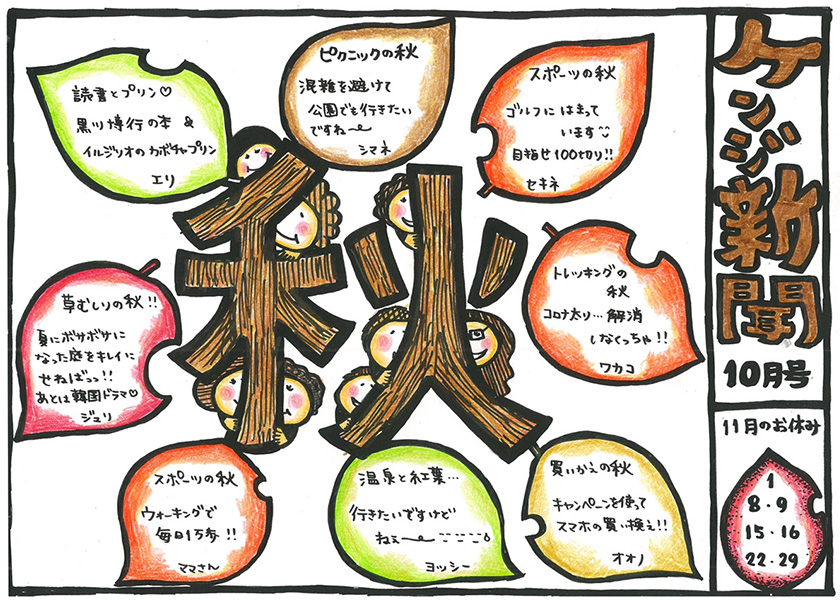 ケンジ新聞
10月号
11月のお休み
1
8・9
15・16
22・29
スポーツの秋
ゴルフに はまって
います
目指せ100切り!!
セキネ
ピクニックの秋
混雑を避けて
公園でも行きたい
ですね〜
シマネ
読書とプリン♡
黒川博行の本 &
イルジリオのカボチャプリン
エリ
秋
トレッキングの
秋
コロナ太り…解消
しなくっちゃ!!
ワカコ
草むしりの秋!!
夏にボサボサに
なった庭をキレイに
せねばっっ!!
あとは韓国ドラマ♡
ジュリ
買いかえの秋
キャンペーンを使って
スマホの買い換え!!
オオノ
温泉と紅葉…
行きたいですけど
ねぇ〜
ヨッシー
スポーツの秋
ウォーキングで
毎日1万歩!!
ママさん